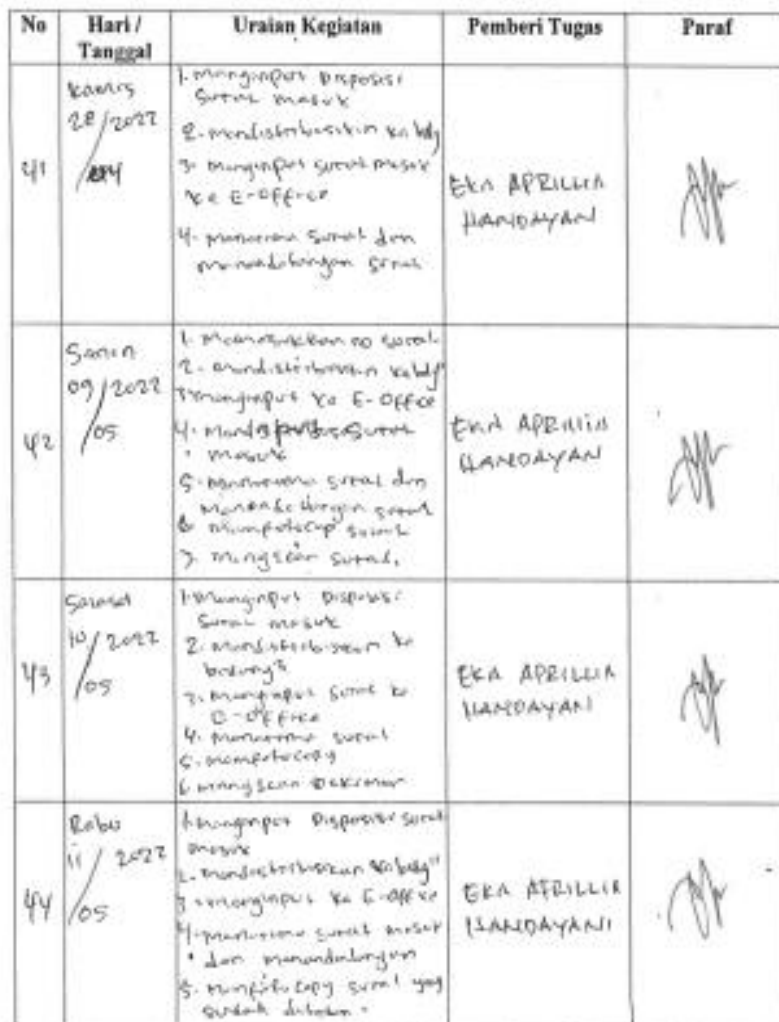 No Hari / Tanggal Uraian Kegiatan Pemberi Tugas Paraf
41
Kamis
28/2022
/04
1. Menginput Disposisi
Surat masuk
2. mendistribusikan ke bdg
3. menginput surat masuk
ke E-Office
4. menerima surat dan
menandatangan surat
EKA APRILLIA
HANDAYAN
42
Senin
09/2022
/05
1. Memasukkan no surat
2. mendistribusikan ke bdg"
3. menginput ke E-Office
4. Surat
masuk
5. menerima surat dan
menandatangan surat
6. memfotocop surat
7. mengscan surat.
EKA APRILLIA
HANDAYAN
43
Selasa
10/2022
/05
1. Menginput Disposisi
Surat masuk
2. mendistribusikan ke
bidang2
3. menginput surat ke
E-Office
4. menerima surat
5. memfotocopy
6. mengscan Dokumen
EKA APRILLIA
HANDAYANI
44
Rabu
11/2022
/05
1. menginput Disposisi surat
masuk
2. mendistribusikan ke bdg"
3. menginput ke E-Office
4. menerima surat masuk
dan menandatangan
5. memfotocopy surat yang
sudah
EKA APRILLIA
HANDAYANI